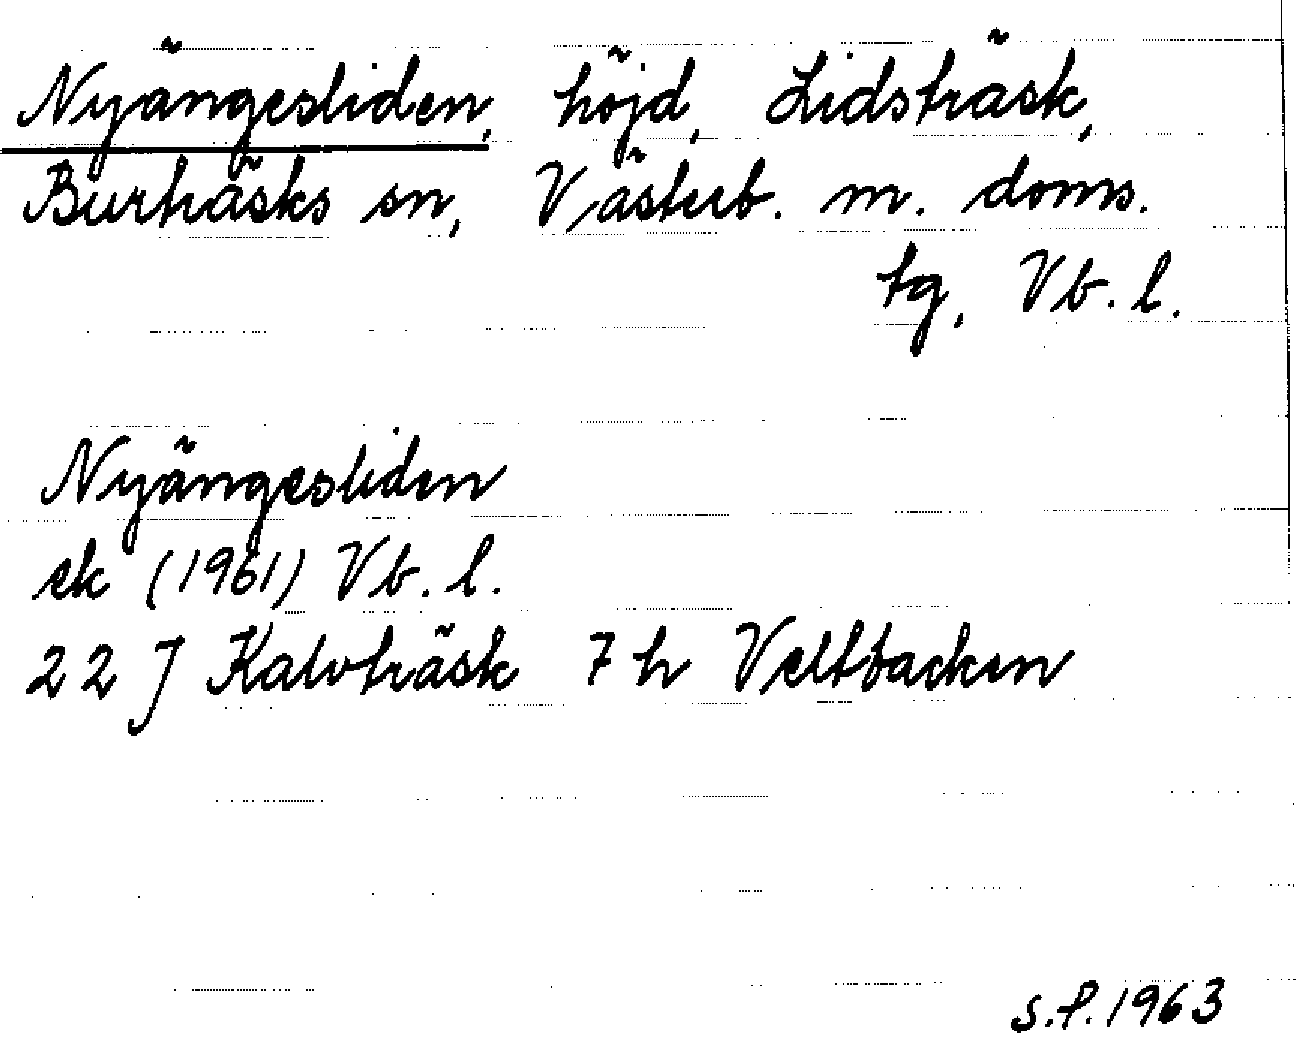 Nyängesliden, höjd, Lidsträsk,
Burträsks sn, Västerb. m. doms.
tg, Vb. l.
Nyängesliden
ek (1961) Vb. l.
22 J Kalvträsk 7 h Veltbacken
s.f. 1963